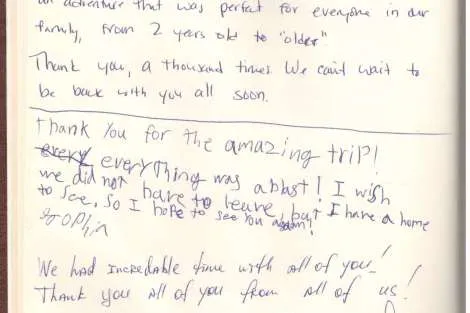 an adventure that was perfect for everyone in our
family, from 2 years old to "older"
Thank you, a thousand times. We can't wait to
be back with you all soon.
Thank You for the amazing trip!
every everything was a blast! I wish
we did not have to leave, but I have a home
to see, so I hope to see you again!
We had Incredable time with all of you!
Thank you all of you from all of us!